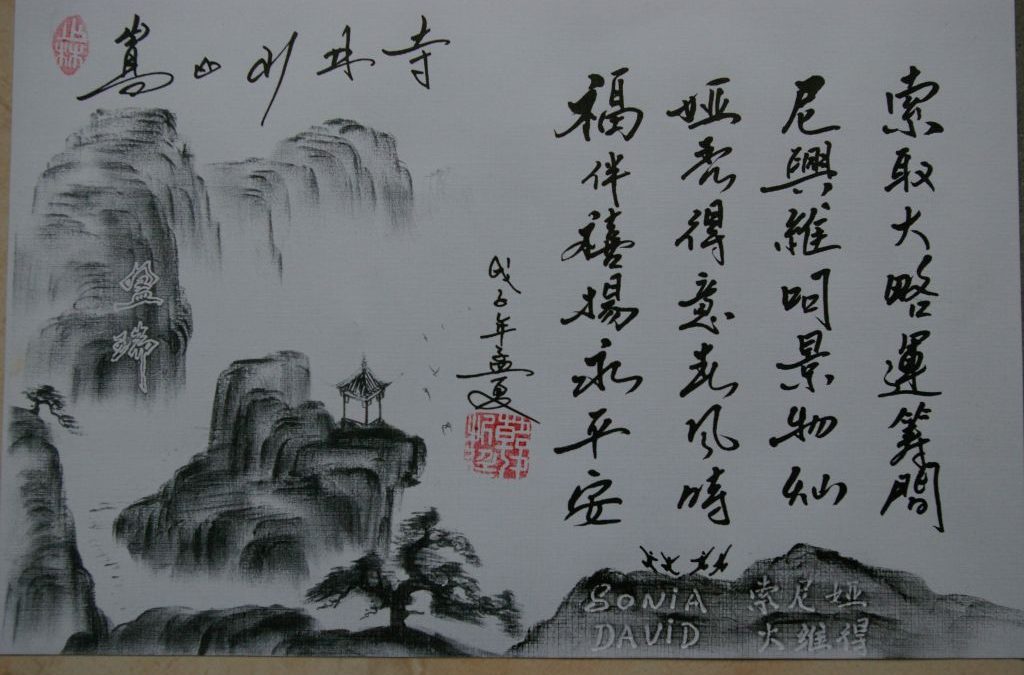 嵩山少林寺
索取大略運籌間
尼興維呵景物仙
娅秀得意春風時
福伴禧揚永平安
戊子年孟夏
盈瑞
SONiA 索尼娅
DAViD 大維得